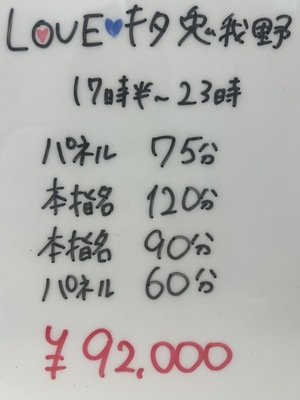 LOVE💙キタ兎我野
17時半~23時
パネル 75分
本指名 120分
本指名 90分
パネル 60分
¥92,000